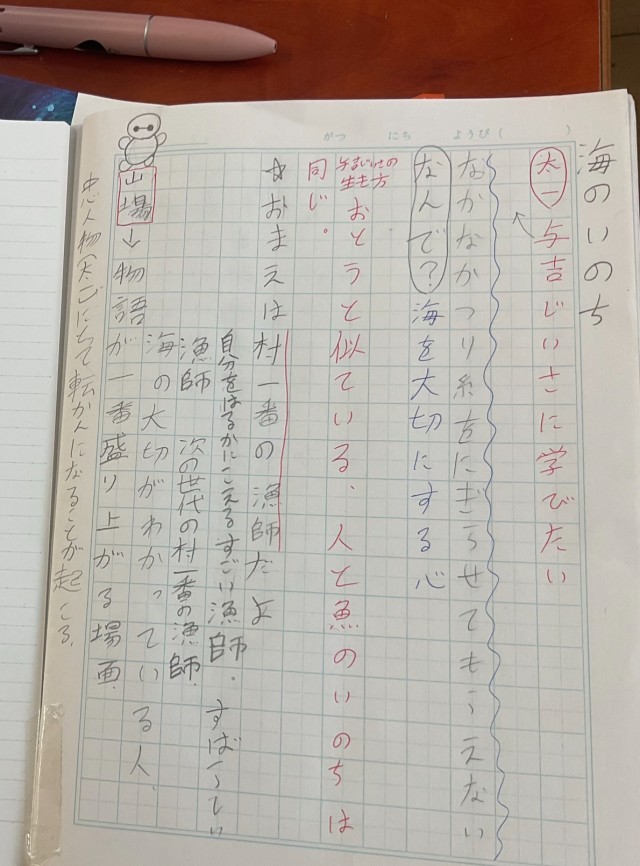 がつ にち ようび( )
海のいのち
太一 与吉じいさに学びたい
なかなかつり糸をにぎらせてもらえない
なんで? 海を大切にする心
与吉じいさの生き方
おとうと似ている、人と魚のいのちは
同じ。
☆おまえは村一番の漁師だよ
自分をはるかにこえるすごい漁師. すばらしい
漁師 次の世代の村一番の漁師.
海の大切がわかっている人.
山場→物語が一番盛り上がる場面.
人物(太一)にとって転かんになることが起こる.